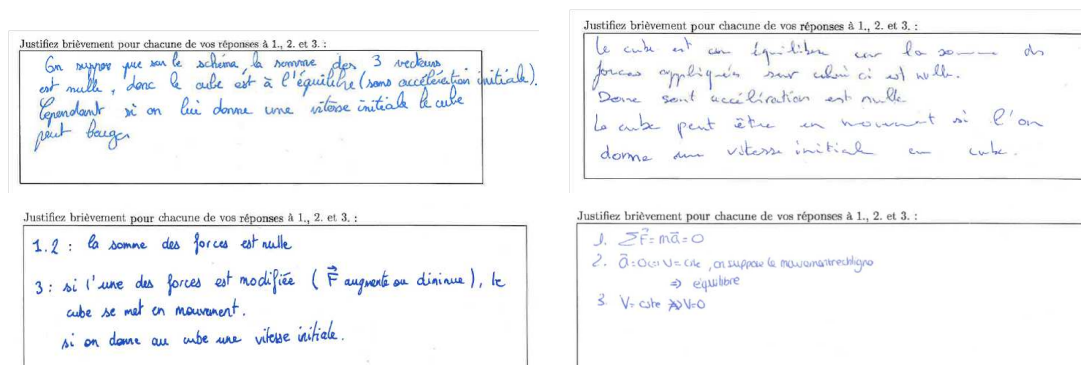 Justifiez brièvement pour chacune de vos réponses à 1., 2. et 3. :
On suppose que sur le schéma, la somme des 3 vecteurs
est nulle, donc le cube est à l'équilibre (sans accélération initiale).
Cependant si on lui donne une vitesse initiale le cube
peut bouger
Justifiez brièvement pour chacune de vos réponses à 1., 2. et 3. :
Le cube est en équilibre car la somme des
forces appliqués sur celui ci est nulle.
Donc sont accélération est nulle
Le cube peut être en mouvement si l'on
donne une vitesse initial au cube.
Justifiez brièvement pour chacune de vos réponses à 1., 2. et 3. :
1.2 : la somme des forces est nulle
3 : si l'une des forces est modifiée (F⃗ augmente ou diminue), le
cube se met en mouvement.
si on donne au cube une vitesse initiale.
Justifiez brièvement pour chacune de vos réponses à 1., 2. et 3. :
1. ΣF⃗ = ma⃗ = 0
2. a⃗ = 0 ⇔ V = cste, on suppose le mouvement rectiligne
⇒ équilibre
3. V = cste ⇏ V=0